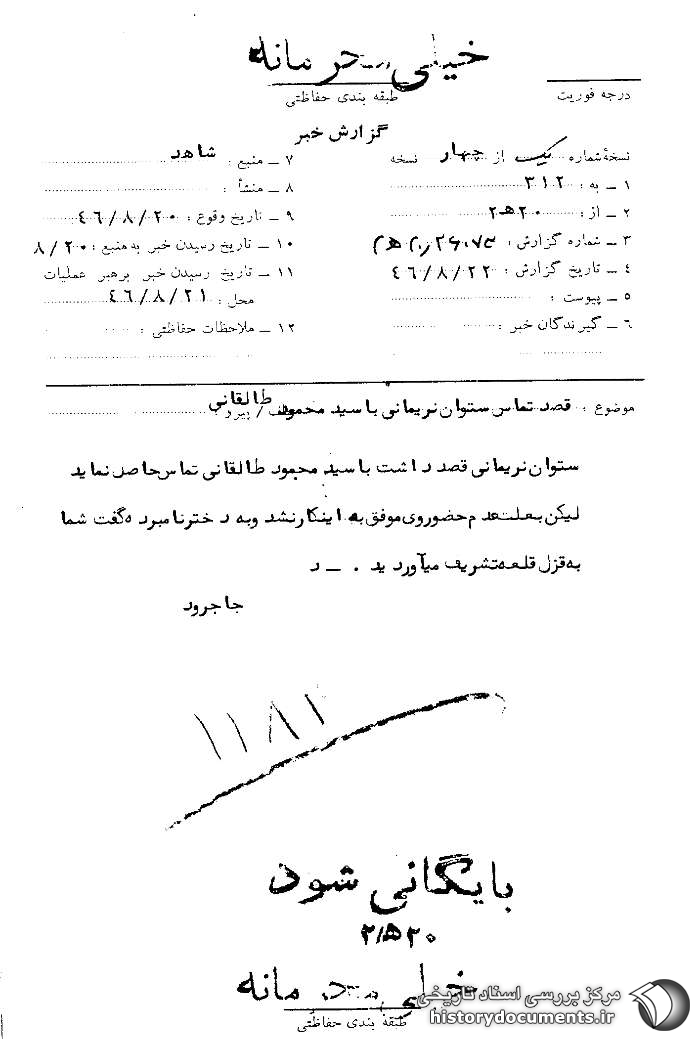 خیلی محرمانه
طبقه بندی حفاظتی
درجه فوریت
گزارش خبر
نسخهٔ شماره یک از چهار نسخه
۱ ــ به : ۳۱۲
۲ ــ از : ۲۰هـ۲
۳ ــ شماره گزارش :
۴ ــ تاریخ گزارش : ۴۶/۸/۲۲
۵ ــ پیوست :
۶ ــ گیرندگان خبر :
۷ ــ منبع : شاهد
۸ ــ منشأ :
۹ ــ تاریخ وقوع : ۴۶/۸/۲۰
۱۰ ــ تاریخ رسیدن خبر به منبع : ۸/۲۰
۱۱ ــ تاریخ رسیدن خبر برهبر عملیات
محل : ۴۶/۸/۲۱
۱۲ ــ ملاحظات حفاظتی :
موضوع : قصد تماس ستوان نریمانی با سید محمود طالقانی
/ پیرو
ستوان نریمانی قصد داشت با سید محمود طالقانی تماس حاصل نماید
لیکن بعلت عدم حضور وی موفق به اینکار نشد و به دختر نامبرده گفت شما
به قزل قلعه تشریف میآورید . ــ د
جاجرود
۱۱۸۲
بایگانی شود
۲۰هـ۲
خیلی محرمانه
طبقهٔ بندی حفاظتی
مرکز بررسی اسناد تاریخی
historydocuments.ir